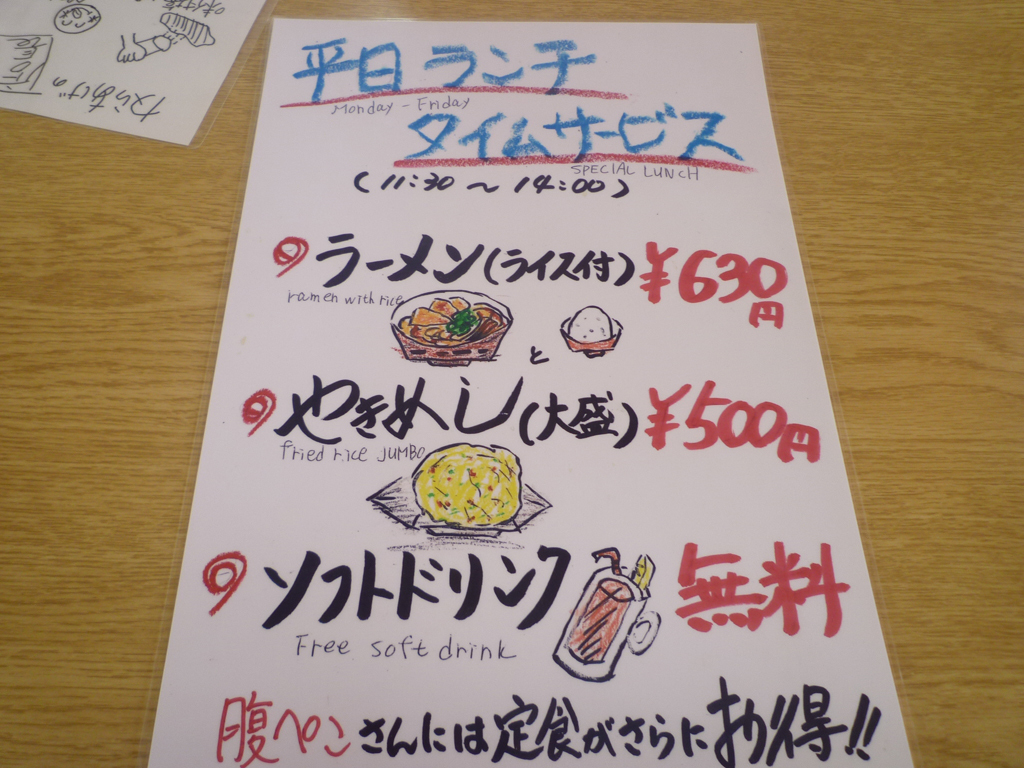 平日ランチ
Monday - Friday
タイムサービス
SPECIAL LUNCH
(11:30 ～ 14:00)
ラーメン(ライス付) ¥630円
ramen with rice
と
やきめし(大盛) ¥500円
fried rice JUMBO
ソフトドリンク 無料
Free soft drink
腹ペこさんには定食がさらにお得!!